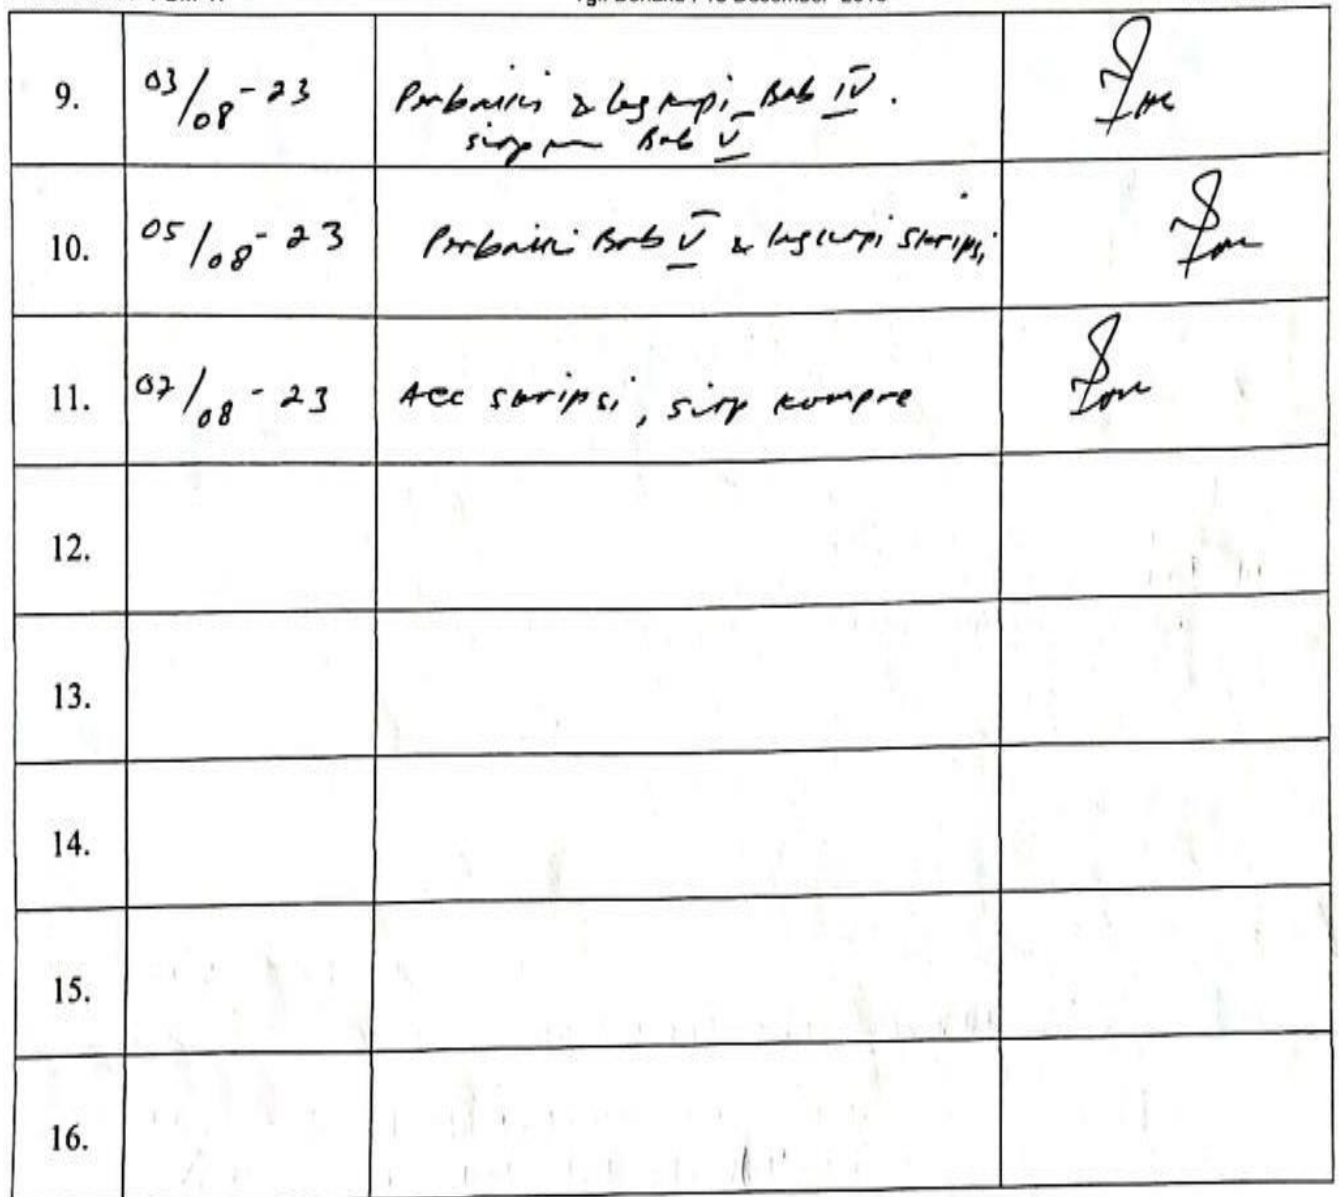 9.
03/08-23
Perbaiki & lengkapi Bab IV.
siapkan Bab V
10.
05/08-23
Perbaiki Bab V & lengkapi skripsi
11.
07/08-23
Acc skripsi, siap kompre
12.
13.
14.
15.
16.